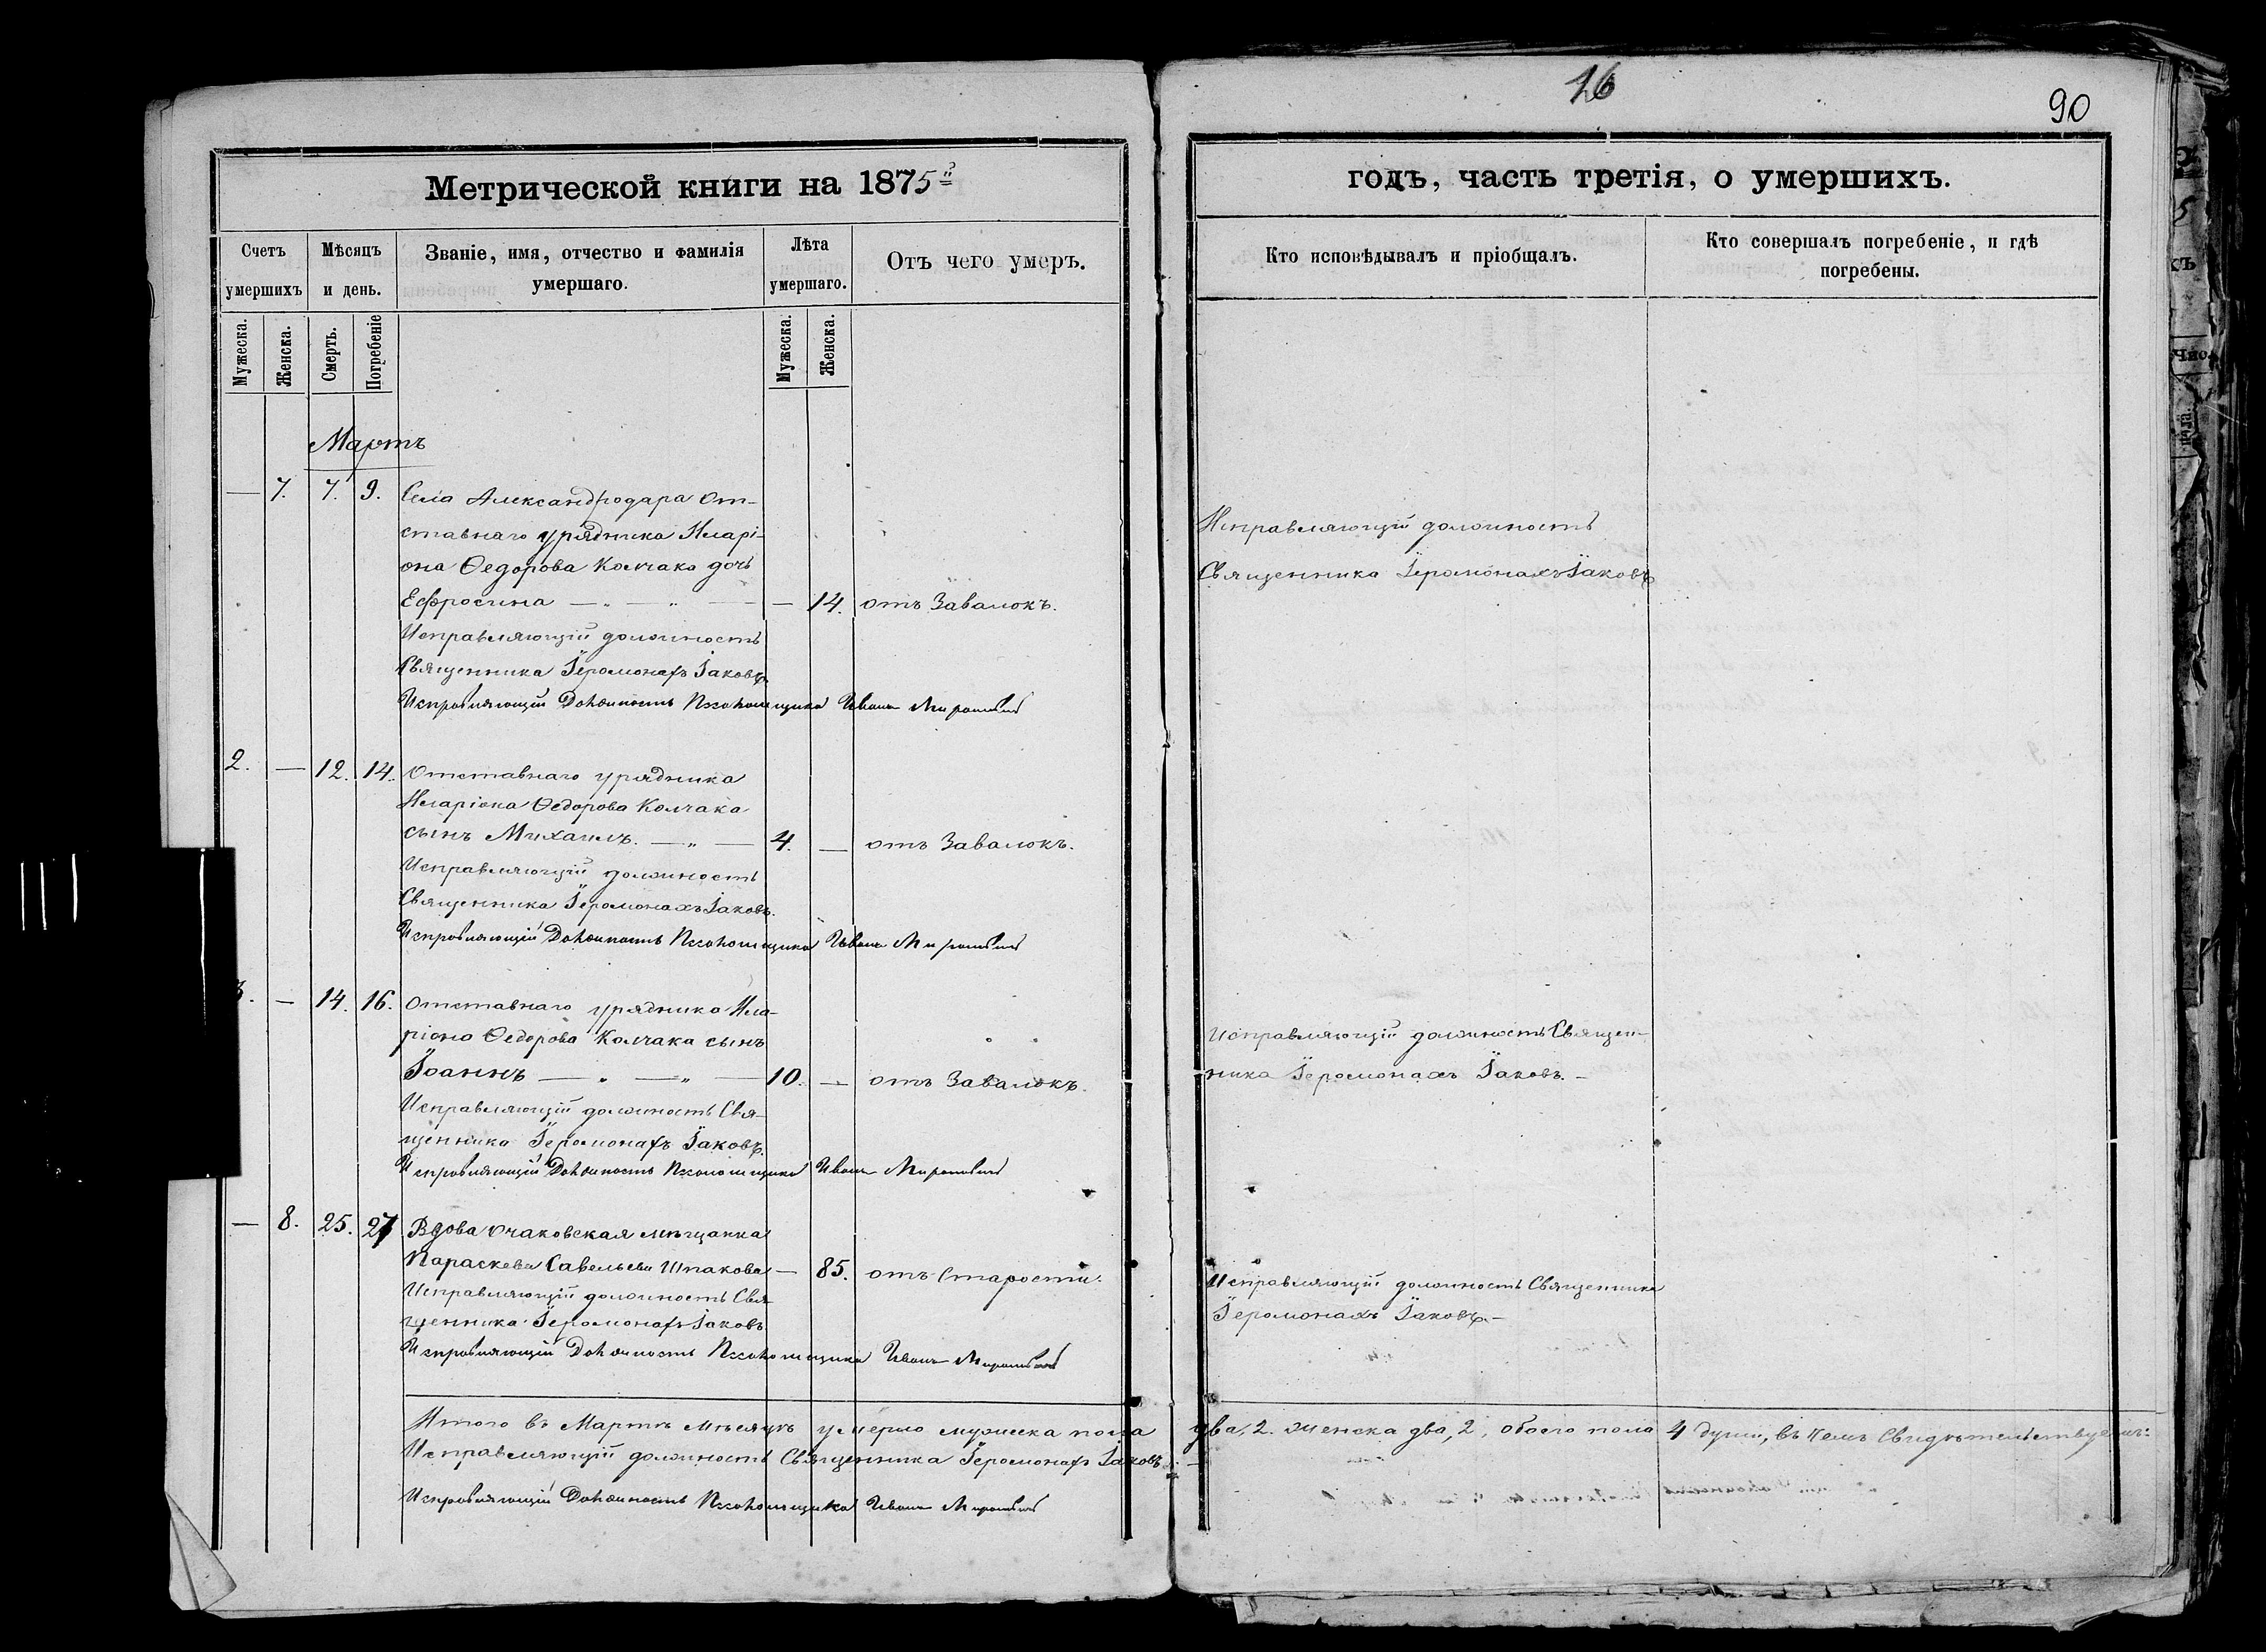 16
90
Метрической книги на 1875й
годъ, часть третія, о умершихъ.
Счетъ умершихъ
Мѣсяцъ и день.
Званіе, имя, отчество и фамилія умершаго.
Лѣта умершаго.
Отъ чего умеръ.
Кто исповѣдывалъ и пріобщалъ.
Кто совершалъ погребеніе, и гдѣ погребены.
Мужеска.
Женска.
Смерть.
Погребеніе
Мужеска.
Женска.
Мартъ
— 7. 7. 9. Села Александродара От-
ставнаго урядника Иларі-
она Ѳедорова Колчака дочь
Ефросина — „ — „ — — 14. отъ Завалокъ.
Исправляющій должность
Священника Іеромонахъ Іаковъ.
Исправляющій Должность Псаломщика Иванъ
Исправляющій должность
Священника Іеромонахъ Іаковъ
2. — 12. 14. Отставнаго урядника
Иларіона Ѳедорова Колчака
сынъ Михаилъ. — „ — 4. — отъ Завалокъ.
Исправляющій должность
Священника Іеромонахъ Іаковъ.
Исправляющій Должность Псаломщика Иванъ
3. — 14. 16. Отставнаго урядника Ила-
ріона Ѳедорова Колчака сынъ
Іоаннъ — „ — „ — 10. — отъ Завалокъ.
Исправляющій должность Свя-
щенника Іеромонахъ Іаковъ.
Исправляющій Должность Псаломщика Иванъ
Исправляющій должность Священ-
ника Іеромонахъ Іаковъ. —
— 8. 25. 27 Вдова Очаковская мѣщанка
Параскева Савельева Шпакова — 85. отъ Старости.
Исправляющій должность Свя-
щенника Іеромонахъ Іаковъ.
Исправляющій Должность Псаломщика Иванъ
Исправляющій должность Священника
Іеромонахъ Іаковъ. —
Итого въ Мартѣ мѣсяцѣ умерло мужеска пола два, 2. женска два, 2, обоего пола 4 души, въ чемъ Свидѣтельствуемъ:
Исправляющій должность Священника Іеромонахъ Іаковъ. —
Исправляющій Должность Псаломщика Иванъ